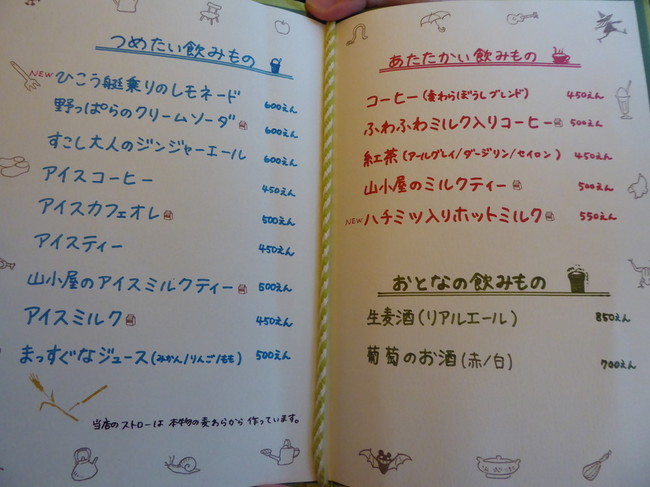 つめたい飲みもの
NEW ひこう艇乗りのレモネード 600えん
野っぱらのクリームソーダ 600えん
すこし大人のジンジャーエール 600えん
アイスコーヒー 450えん
アイスカフェオレ 500えん
アイスティー 450えん
山小屋のアイスミルクティー 500えん
アイスミルク 450えん
まっすぐなジュース(みかん/りんご/もも) 500えん
当店のストローは本物の麦わらから作っています。
あたたかい飲みもの
コーヒー(麦わらぼうしブレンド) 450えん
ふわふわミルク入りコーヒー 500えん
紅茶(アールグレイ/ダージリン/セイロン) 450えん
山小屋のミルクティー 500えん
NEW ハチミツ入りホットミルク 550えん
おとなの飲みもの
生麦酒(リアルエール) 850えん
葡萄のお酒(赤/白) 700えん